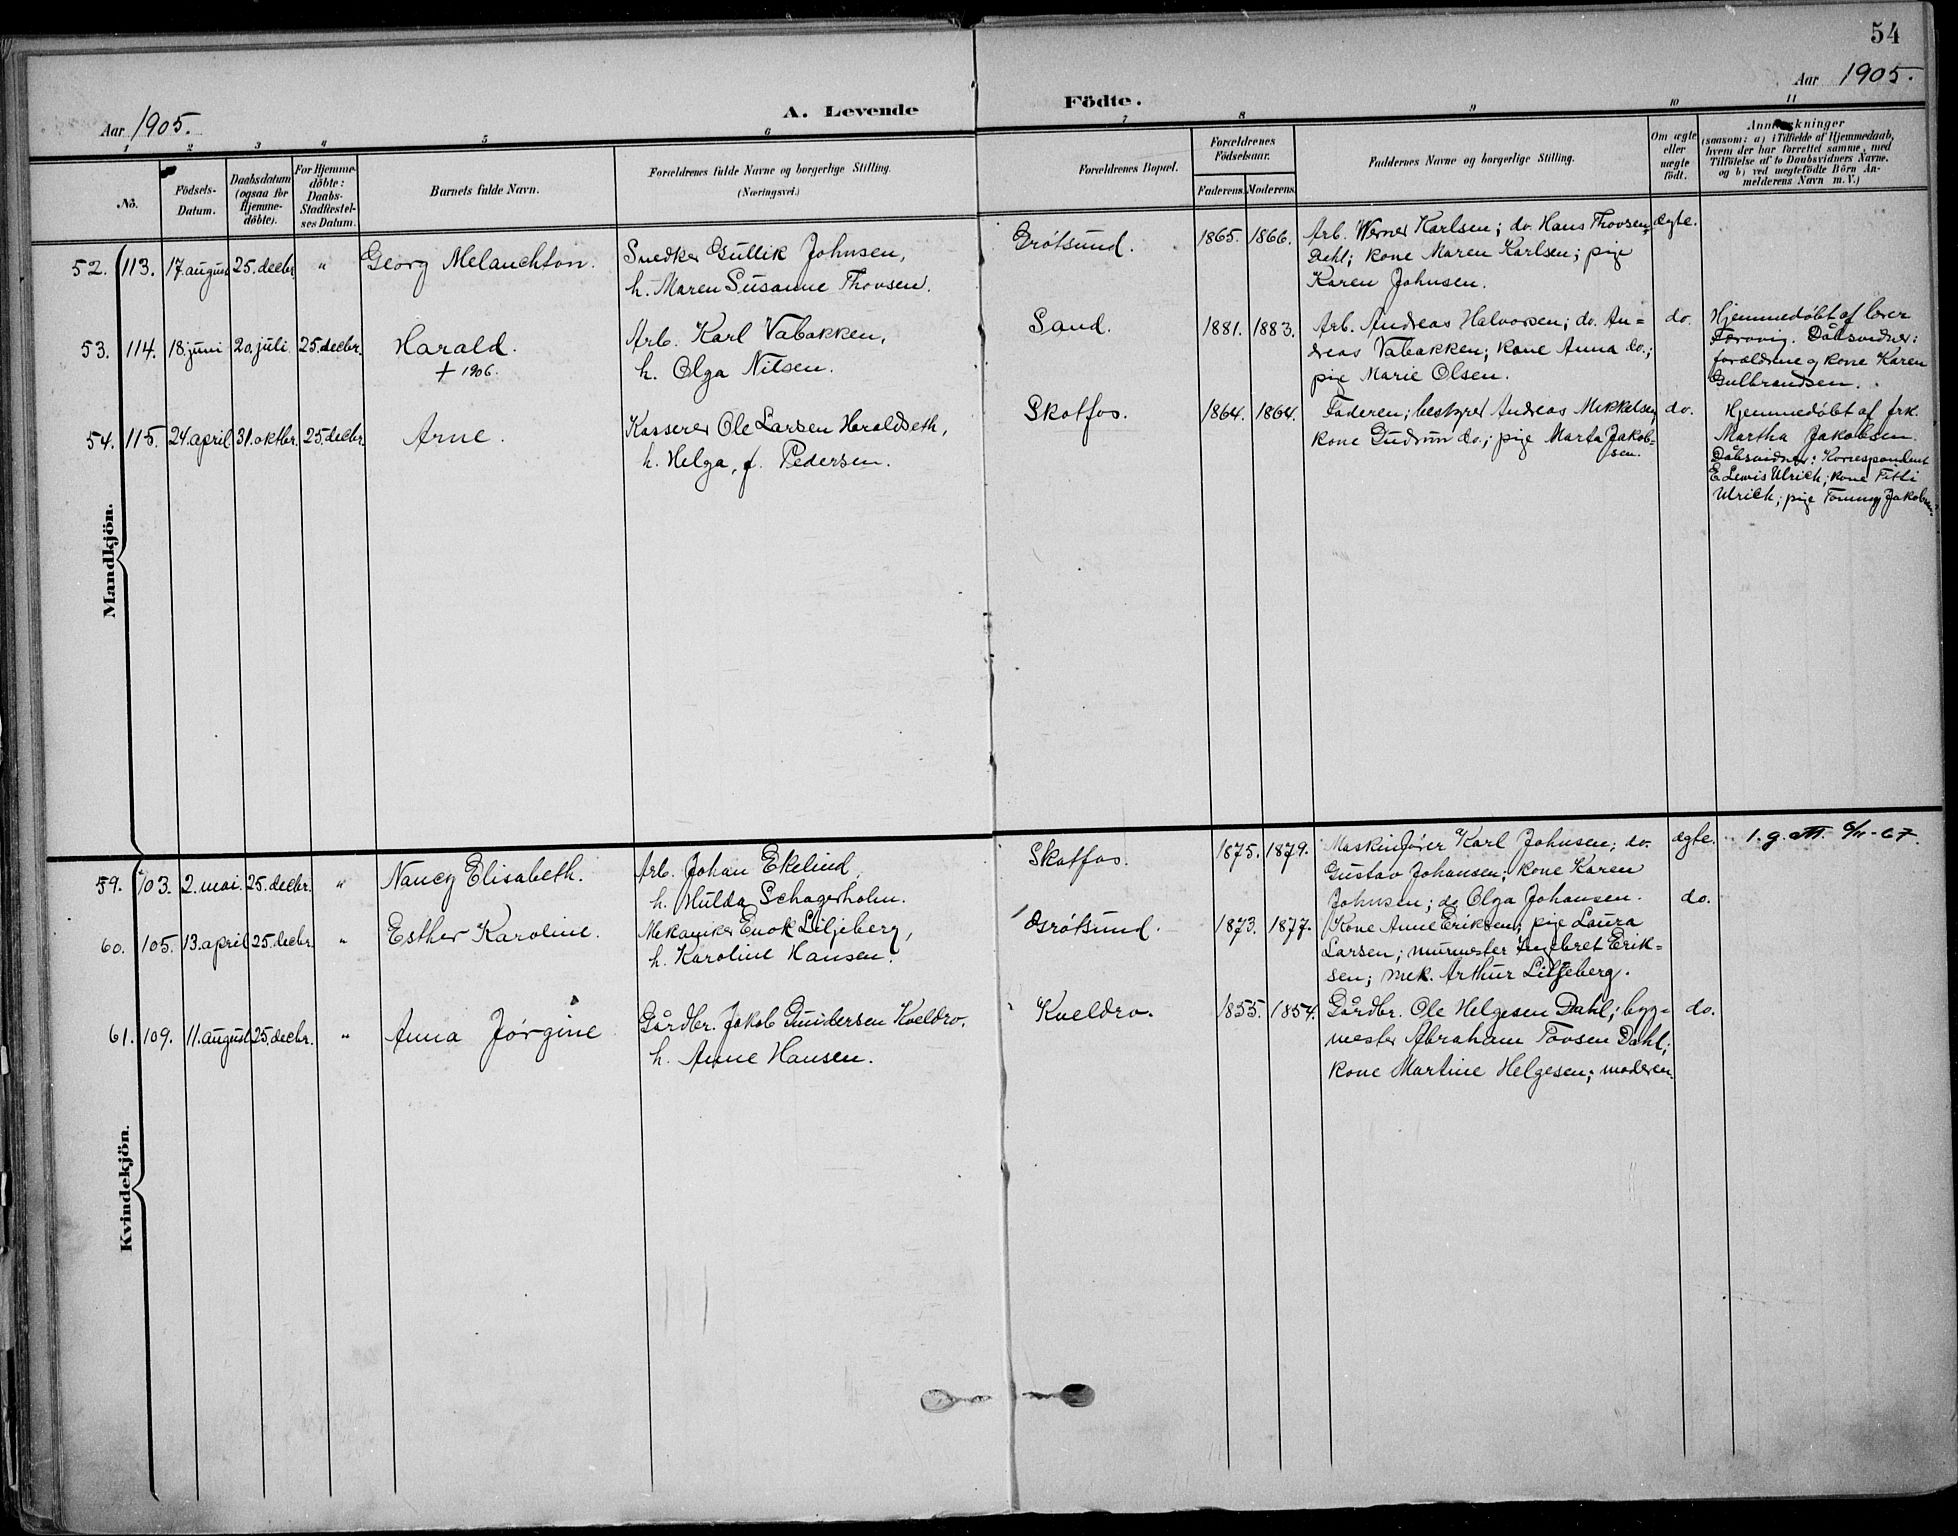 54
Aar 1905.
Aar 1905.
A. Levende Födte.
1 2 3 4 5 6 7 8 9 10 11
No.
Födsels-
Datum.
Daabsdatum
(ogsaa for
Hjemme-
döbte).
For Hjemme-
döbte:
Daabs-
Stadfæstel-
ses Datum.
Barnets fulde Navn.
Forældrenes fulde Navne og borgerlige Stilling.
(Næringsvei.)
Forældrenes Bopæl.
Forældrenes
Födselsaar.
Faderens. Moderens.
Faddernes Navne og borgerlige Stilling.
Om ægte
eller
uægte
født.
Anmærkninger
(saasom: a) i Tilfælde af Hjemmedaab,
hvem der har forrettet samme, med
Tilföielse af to Daabsvidners Navne.
og b) ved uægtefödte Börn An-
melderens Navn m. V.)
Mandkjön.
52. 113. 17. august 25. decbr. " Georg Melanchton.
Snedker Gullik Johnsen,
h. Maren Susanne Thovsen.
Grótsund. 1865. 1866.
Arb. Werner Karlsen; do. Hans Thovsen
Dehl; kone Maren Karlsen; pige
Karen Johnsen.
ægte.
53. 114. 18. juni 20. juli 25. decbr. Harald.
+ 1906.
Arb. Karl Vabakken,
h. Olga Nilsen.
Sand. 1881. 1883.
Arb. Andreas Halvorsen; do. An-
dreas Vabakken; kone Anna do.;
pige Marie Olsen.
do.
Hjemmedøbt af lærer
Dåbsvidner:
forældrene og kone Karen
Gulbrandsen.
54. 115. 24. april 31. oktbr. 25. decbr. Arne.
Kasserer Ole Larsen Haraldseth,
h. Helga, f. Pedersen.
Skotfos. 1864. 1864.
Faderen; bestyrer Andreas Mikkelsen
kone Gudrun do.; pige Marta Jakob-
sen.
do.
Hjemmedøbt af frk.
Martha Jakobsen.
Dåbsvidner: Korrespondent
E Lewis Ulrich; kone Titti
Ulrich; pige Tommy Jakobsen.
Kvindekjön.
59. 103. 2. mai 25. decbr. " Nancy Elisabeth.
Arb. Johan Ekelind,
h. Hulda Schagerholm.
Skotfos. 1875. 1879.
Maskinfører Karl Johnsen; do.
Gustav Johansen; kone Karen
Johnsen; do Olga Johansen.
ægte.
1.g.
60. 105. 13. april 25. decbr. " Esther Karoline.
Mekaniker Enok Liljeberg,
h. Karoline Hansen.
Grótsund. 1873. 1877.
Kone Anne Eriksen; pige Laura
Larsen; murmester Ingebret Erik-
sen; mek. Arthur Liljeberg.
do.
61. 109. 11. august 25. decbr. " Anna Jørgine
Gårdbr. Jakob Gundersen Kveldro,
h. Anne Hansen.
Kveldro. 1855. 1854.
Gårdbr. Ole Helgesen Dahl; byg-
mester Abraham Tovsen Dahl;
kone Martine Helgesen; moderen.
do.